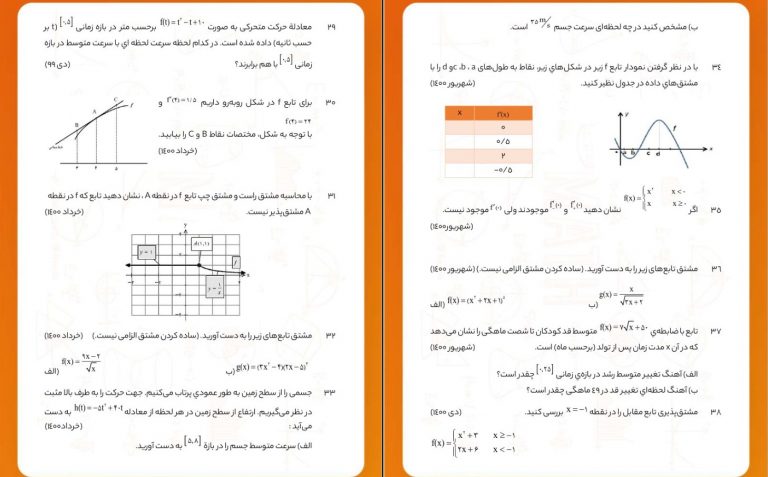 ۲۹ معادلهٔ حرکت متحرکی به صورت f(t)=t²-t+۱۰ برحسب متر در بازه زمانی [۰,۵] (t بر
حسب ثانیه) داده شده است. در کدام لحظه سرعت لحظه ای با سرعت متوسط در بازه
زمانی [۰,۵] با هم برابرند؟ (دی ۹۹)
۳۰ برای تابع f در شکل روبه‌رو داریم f'(۴)=۱/۵ و
f(۴)=۲۴
با توجه به شکل، مختصات نقاط B و C را بیابید.
(خرداد ۱۴۰۰)
C
f
A
B
۳ ۴ ۵
۳۱ با محاسبه مشتق راست و مشتق چپ تابع f در نقطه A ، نشان دهید تابع که f در نقطه
A مشتق‌پذیر نیست. (خرداد ۱۴۰۰)
y
y = ۱
A(۱,۱)
f
x
y = ۱/x
۳۲ مشتق تابع‌های زیر را به دست آورید. (ساده کردن مشتق الزامی نیست.) (خرداد ۱۴۰۰)
الف) f(x)=(۹x-۲)/√x
ب) g(x)=(۳x²-۴)(۲x-۵)³
۳۳ جسمی را از سطح زمین به طور عمودی پرتاب می‌کنیم. جهت حرکت را به طرف بالا مثبت
در نظر می‌گیریم. ارتفاع از سطح زمین در هر لحظه از معادله h(t)=-۵t²+۴۰t به دست
می‌آید : (خرداد ۱۴۰۰)
الف) سرعت متوسط جسم را در بازه [۵,۸] به دست آورید.
ب) مشخص کنید در چه لحظه‌ای سرعت جسم ۳۵ m/s است.
۳۴ با در نظر گرفتن نمودار تابع f زیر در شکل‌های زیر، نقاط به طول‌های a ،b ،c و d را با
مشتق‌های داده در جدول نظیر کنید. (شهریور ۱۴۰۰)
x f'(x)
۰
۰/۵
۲
-۰/۵
y
f
a b c d x
۳۵ اگر f(x)={x² x<۰
x x≥۰
نشان دهید f'₊(۰) و f'₋(۰) موجودند ولی f'(۰) موجود نیست.
(شهریور ۱۴۰۰)
۳۶ مشتق تابع‌های زیر را به دست آورید. (ساده کردن مشتق الزامی نیست.) (شهریور ۱۴۰۰)
الف) f(x)=(x²+۲x+۱)⁵
ب) g(x)=x/√(۳x+۲)
۳۷ تابع با ضابطه‌ی f(x)=۷√x+۵۰ متوسط قد کودکان تا شصت ماهگی را نشان می‌دهد
که در آن x مدت زمان پس از تولد (برحسب ماه) است. (شهریور ۱۴۰۰)
الف) آهنگ تغییر متوسط رشد در بازه‌ی زمانی [۰,۲۵] چقدر است؟
ب) آهنگ لحظه‌ای تغییر قد در ۴۹ ماهگی چقدر است؟
۳۸ مشتق‌پذیری تابع مقابل را در نقطه x=-۱ بررسی کنید. (دی ۱۴۰۰)
f(x)={x²+۳ x≥-۱
۲x+۶ x<-۱